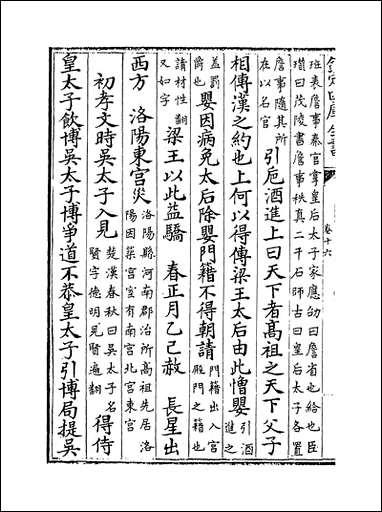 欽定四庫全書
卷十六
班表詹事秦官掌皇后太子家應劭曰詹省也給也臣
瓉曰茂陵書詹事秩真二千石師古曰皇后太子各置
詹事隨其所在以名官引巵酒進上曰天下者髙祖之天下父子
相傳漢之約也上何以得傳梁王太后由此憎嬰引酒進之
盖罰爵也嬰因病免太后除嬰門籍不得朝請門籍出入宫殿門之籍也
請材性翻又如字梁王以此益驕 春正月乙巳赦 長星出
西方 洛陽東宫災洛陽縣河南郡治所髙祖先居洛陽因築宫室有南宫北宫東宫
初孝文時吳太子入見楚漢春秋曰吳太子名賢字德明見賢遍翻得侍
皇太子飲博吳太子博爭道不恭皇太子引博局提吳